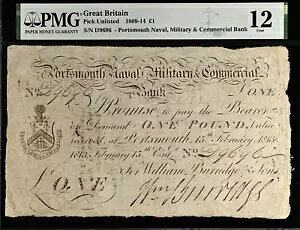 PMG
PAPER MONEY GUARANTY
Great Britain
Pick Unlisted 1809-14 £1
S/N D9696 - Portsmouth Naval, Military & Commercial Bank
12
Fine
Portsmouth Naval Military & Commercial
Bank
ONE
I Promise to pay the Bearer
on Demand ONE POUND, Value
received, at Portsmouth, 15th February 1813.
1813. February 15th Entd No D9696
For William Burridge & Sons,
£ONE
Wm Burridge